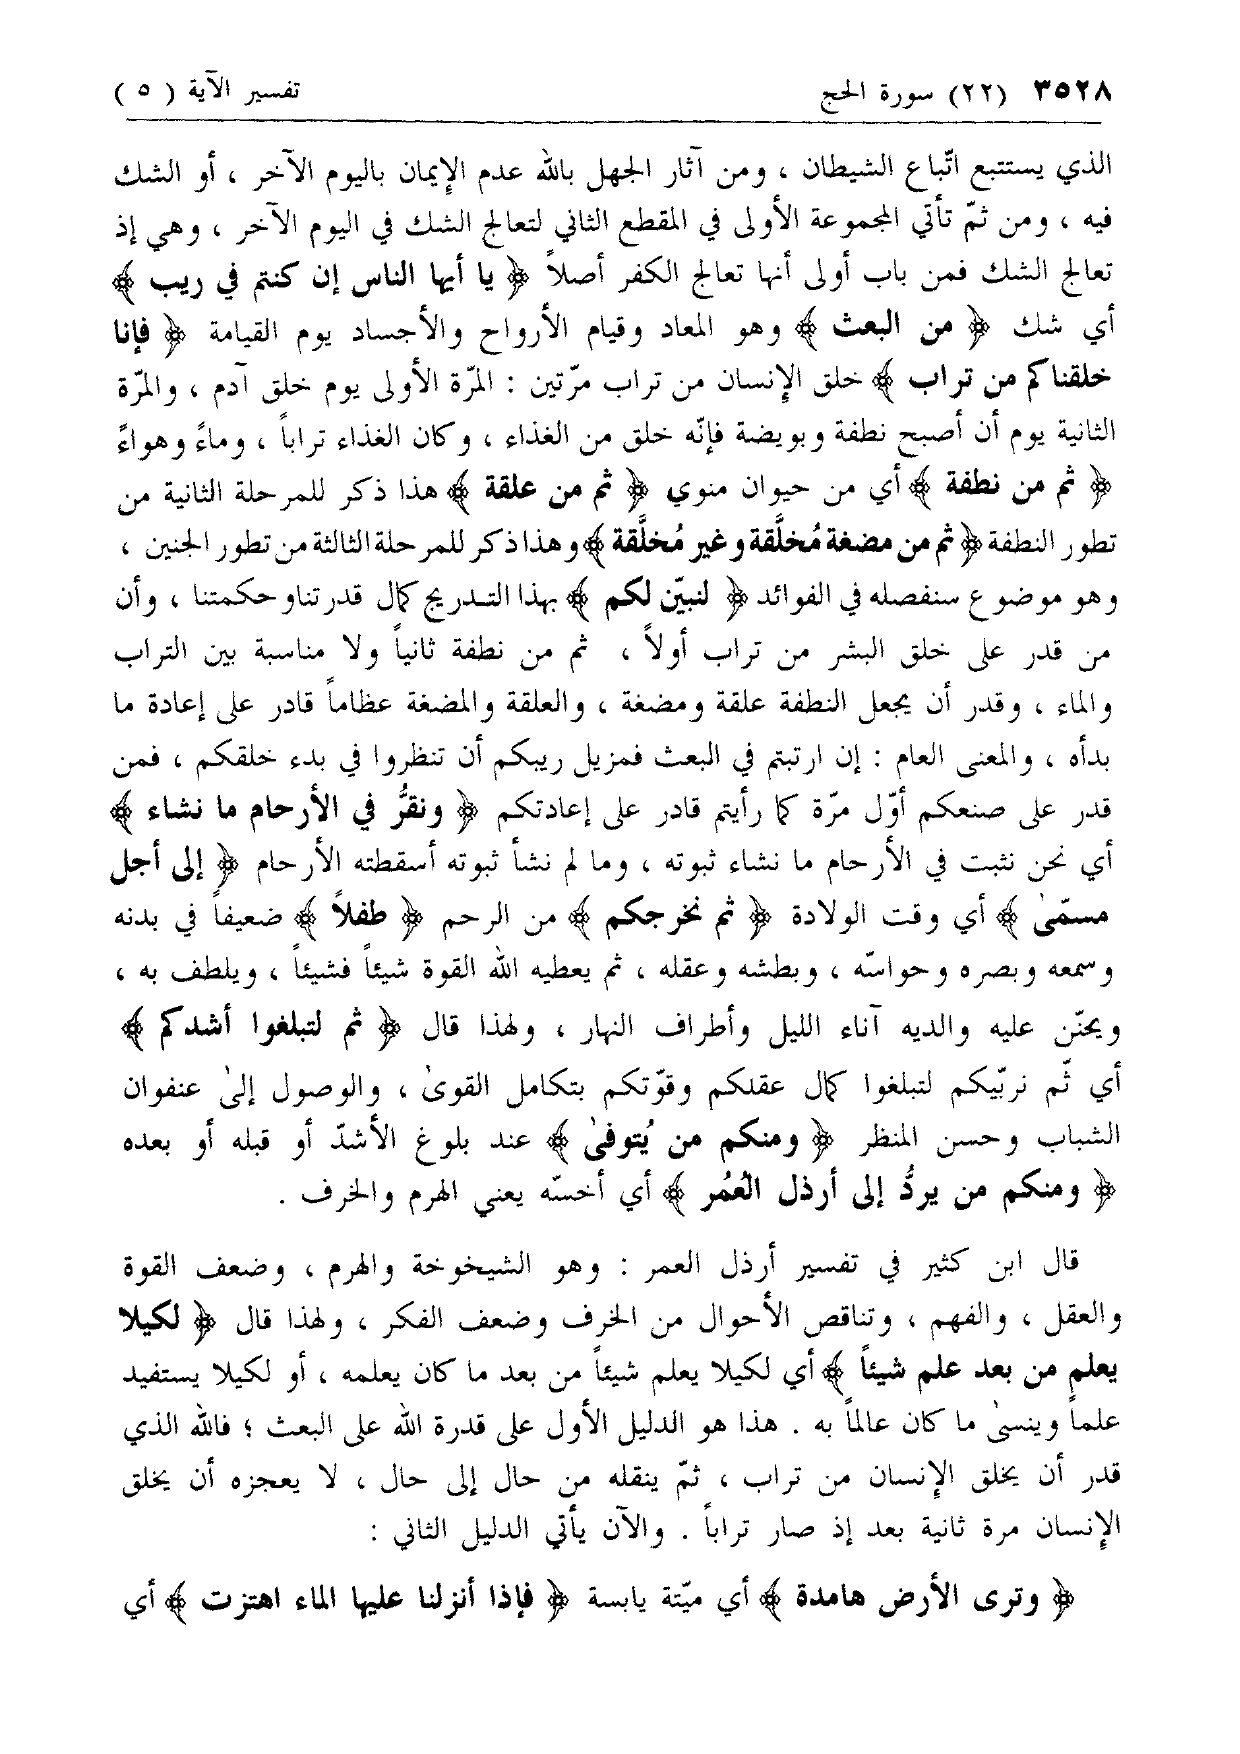 ٣٥٢٨ (٢٢) سورة الحج تفسير الآية ( ٥ )
الذي يستتبع اتّباع الشيطان ، ومن آثار الجهل بالله عدم الإيمان باليوم الآخر ، أو الشك
فيه ، ومن ثمّ تأتي المجموعة الأولى في المقطع الثاني لتعالج الشك في اليوم الآخر ، وهي إذ
تعالج الشك فمن باب أولى أنها تعالج الكفر أصلاً ﴿ يا أيها الناس إن كنتم في ريب ﴾
أي شك ﴿ من البعث ﴾ وهو المعاد وقيام الأرواح والأجساد يوم القيامة ﴿ فإنا
خلقناكم من تراب ﴾ خلق الإنسان من تراب مرّتين : المرّة الأولى يوم خلق آدم ، والمرّة
الثانية يوم أن أصبح نطفة وبويضة فإنّه خلق من الغذاء ، وكان الغذاء تراباً ، وماءً وهواءً
﴿ ثم من نطفة ﴾ أي من حيوان منوي ﴿ ثم من علقة ﴾ هذا ذكر للمرحلة الثانية من
تطور النطفة ﴿ ثم من مضغة مُخلَّقة وغير مُخلَّقة ﴾ وهذا ذكر للمرحلة الثالثة من تطور الجنين ،
وهو موضوع سنفصله في الفوائد ﴿ لنبيّن لكم ﴾ بهذا التدريج كمال قدرتنا وحكمتنا ، وأن
من قدر على خلق البشر من تراب أولاً ، ثم من نطفة ثانياً ولا مناسبة بين التراب
والماء ، وقدر أن يجعل النطفة علقة ومضغة ، والعلقة والمضغة عظاماً قادر على إعادة ما
بدأه ، والمعنى العام : إن ارتبتم في البعث فمزيل ريبكم أن تنظروا في بدء خلقكم ، فمن
قدر على صنعكم أوّل مرّة كما رأيتم قادر على إعادتكم ﴿ ونقرُّ في الأرحام ما نشاء ﴾
أي نحن نثبت في الأرحام ما نشاء ثبوته ، وما لم نشأ ثبوته أسقطته الأرحام ﴿ إلى أجل
مسمّىٰ ﴾ أي وقت الولادة ﴿ ثم نخرجكم ﴾ من الرحم ﴿ طفلاً ﴾ ضعيفاً في بدنه
وسمعه وبصره وحواسّه ، وبطشه وعقله ، ثم يعطيه الله القوة شيئاً فشيئاً ، ويلطف به ،
ويحنّن عليه والديه آناء الليل وأطراف النهار ، ولهذا قال ﴿ ثم لتبلغوا أشدكم ﴾
أي ثّم نربّيكم لتبلغوا كمال عقلكم وقوّتكم بتكامل القوىٰ ، والوصول إلىٰ عنفوان
الشباب وحسن المنظر ﴿ ومنكم من يُتوفىٰ ﴾ عند بلوغ الأشدّ أو قبله أو بعده
﴿ ومنكم من يردُّ إلى أرذل العُمُر ﴾ أي أخسّه يعني الهرم والخرف .
قال ابن كثير في تفسير أرذل العمر : وهو الشيخوخة والهرم ، وضعف القوة
والعقل ، والفهم ، وتناقص الأحوال من الخرف وضعف الفكر ، ولهذا قال ﴿ لكيلا
يعلم من بعد علم شيئاً ﴾ أي لكيلا يعلم شيئاً من بعد ما كان يعلمه ، أو لكيلا يستفيد
علماً وينسىٰ ما كان عالماً به . هذا هو الدليل الأول على قدرة الله على البعث ؛ فالله الذي
قدر أن يخلق الإنسان من تراب ، ثمّ ينقله من حال إلى حال ، لا يعجزه أن يخلق
الإنسان مرة ثانية بعد إذ صار تراباً . والآن يأتي الدليل الثاني :
﴿ وترى الأرض هامدة ﴾ أي ميّتة يابسة ﴿ فإذا أنزلنا عليها الماء اهتزت ﴾ أي